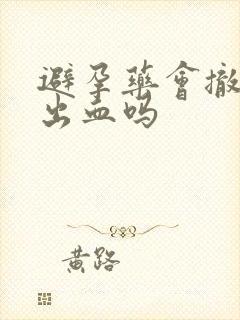 避孕藥會撤
出血吗
黄路